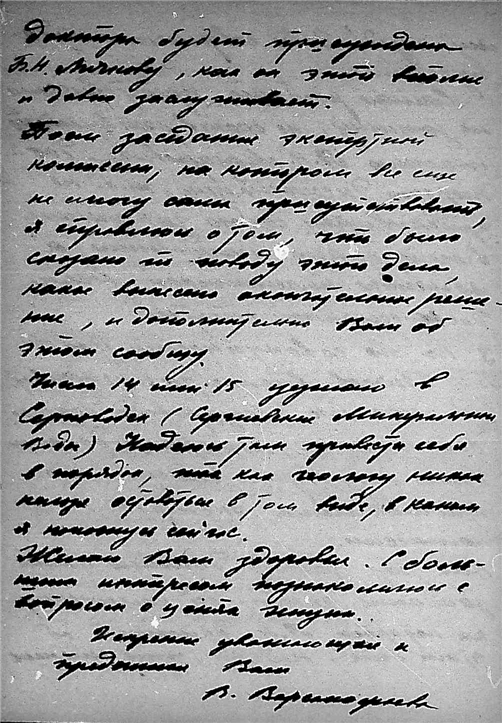 доктора будет присуждена
Б.Н. , как он этого вполне
и давно заслуживает.
После заседания экспертной
комиссии, на котором все еще
не смогу сам присутствовать,
я справлюсь о том, что было
сказано по поводу этого дела,
какое вынесено окончательное реше-
ние, и дополнительно Вам об
этом сообщу.
Числа 14 или 15 уезжаю в
Серноводск (Сергиевские Минеральные
Воды) Надеюсь там привести себя
в порядок, так как геологу никак
нельзя оставаться в том виде, в каком
я нахожусь сейчас.
Желаю Вам здоровья. С боль-
шим интересом познакомился с
вопросом о
Искренне уважающий и
преданный Вам
В.